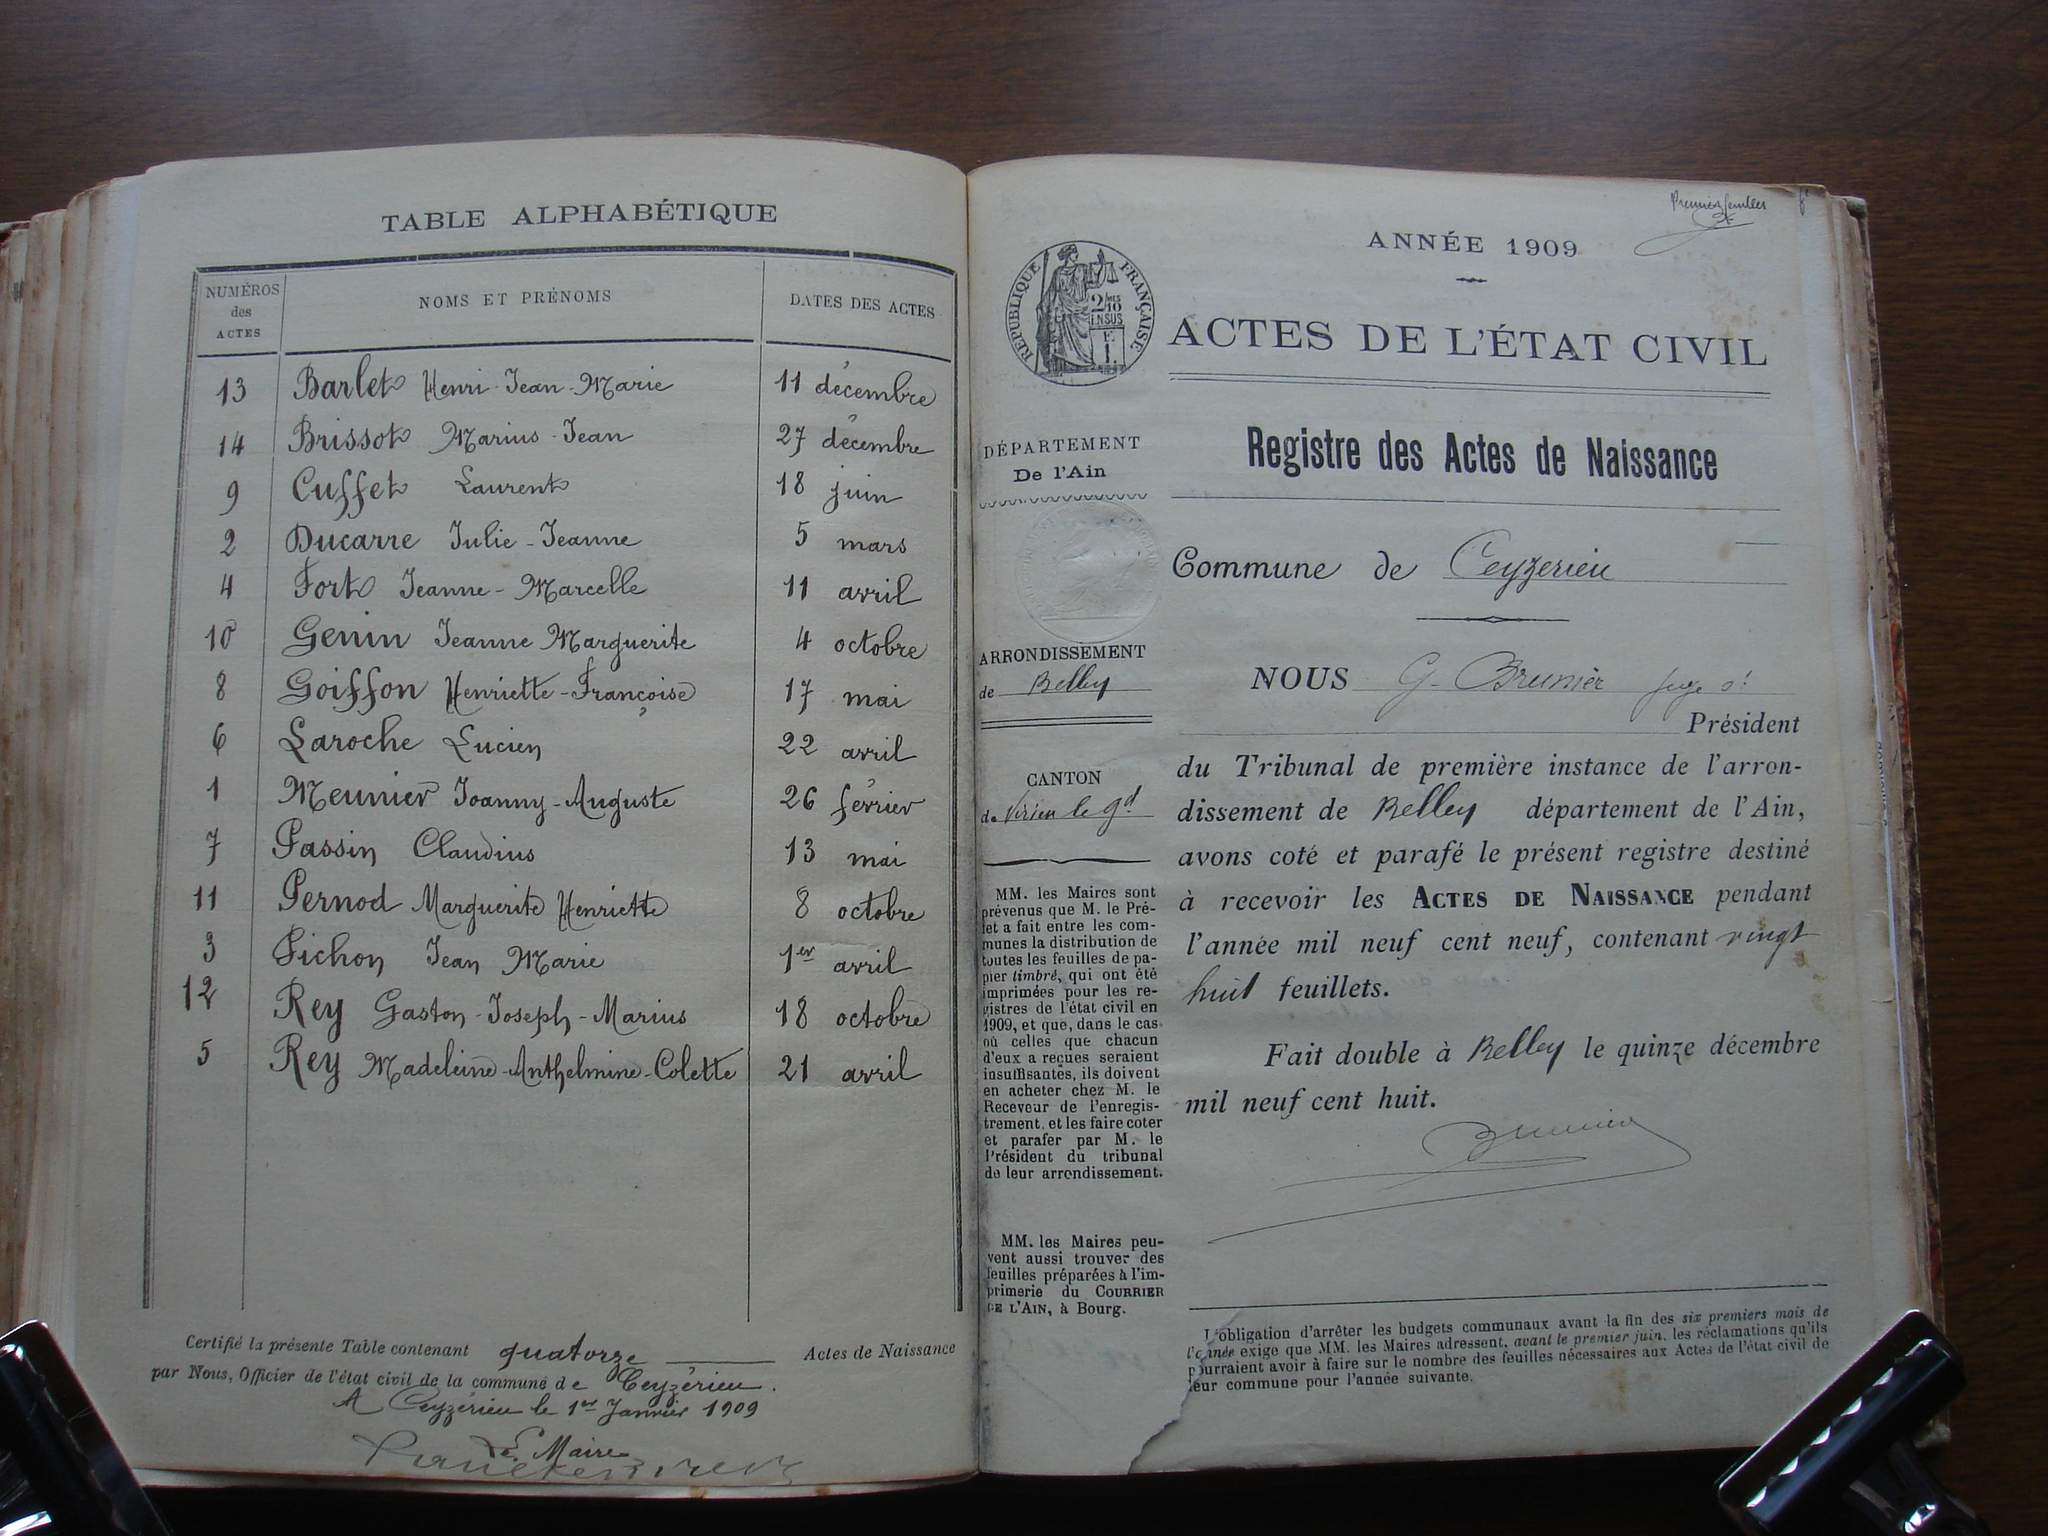 TABLE ALPHABÉTIQUE
NUMÉROS des ACTES | NOMS ET PRÉNOMS | DATES DES ACTES
13 Barlet Henri-Jean-Marie 11 décembre
14 Brissot Marius-Jean 27 décembre
9 Cuffet Laurent 18 juin
2 Ducarre Julie-Jeanne 5 mars
4 Fort Jeanne-Marcelle 11 avril
10 Genin Jeanne Marguerite 4 octobre
8 Goiffon Henriette-Françoise 17 mai
6 Laroche Lucien 22 avril
1 Meunier Joanny-Auguste 26 février
7 Passin Claudius 13 mai
11 Pernod Marguerite Henriette 8 octobre
3 Pichon Jean Marie 1er avril
12 Rey Gaston-Joseph-Marius 18 octobre
5 Rey Madeleine-Anthelmine-Colette 21 avril
Certifié la présente Table contenant quatorze Actes de Naissance
par Nous, Officier de l'état civil de la commune de Ceyzérieu.
A Ceyzérieu le 1er Janvier 1909
Le Maire
Premier feuillet
ANNÉE 1909
RÉPUBLIQUE FRANÇAISE
2/10 EN SUS
ACTES DE L'ÉTAT CIVIL
DÉPARTEMENT
De l'Ain
ARRONDISSEMENT
de Belley
CANTON
de Virieu le Gd
MM. les Maires sont
prévenus que M. le Pré-
fet a fait entre les com-
munes la distribution de
toutes les feuilles de pa-
pier timbré, qui ont été
imprimées pour les re-
gistres de l'état civil en
1909, et que, dans le cas
où celles que chacun
d'eux a reçues seraient
insuffisantes, ils doivent
en acheter chez M. le
Receveur de l'enregis-
trement, et les faire coter
et parafer par M. le
Président du tribunal
de leur arrondissement.
MM. les Maires peu-
vent aussi trouver des
feuilles préparées à l'im-
primerie du COURRIER
DE L'AIN, à Bourg.
Registre des Actes de Naissance
Commune de Ceyzerieu
NOUS G. Brunier juge
Président
du Tribunal de première instance de l'arron-
dissement de Belley département de l'Ain,
avons coté et parafé le présent registre destiné
à recevoir les ACTES DE NAISSANCE pendant
l'année mil neuf cent neuf, contenant vingt
huit feuillets.
Fait double à Belley le quinze décembre
mil neuf cent huit.
Brunier
L'obligation d'arrêter les budgets communaux avant la fin des six premiers mois de
l'année exige que MM. les Maires adressent, avant le premier juin, les réclamations qu'ils
pourraient avoir à faire sur le nombre des feuilles nécessaires aux Actes de l'état civil de
leur commune pour l'année suivante.